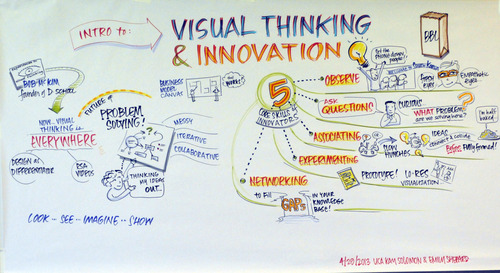 INTRO to:
VISUAL THINKING
& INNOVATION
BBL
BOB McKIM
founder of D. SCHOOL
NOW.. VISUAL
THINKING is..
EVERYWHERE
DESIGN as
DIFFERENTIATOR
RSA
VIDEOS
FUTURE
PROBLEM
SOLVING!
MESSY
ITERATIVE
COLLABORATIVE
THINKING
MY IDEAS
OUT...
BUSINESS
MODEL
CANVAS
COOK .. SEE .. IMAGINE .. SHOW
5
CORE SKILLS of
INNOVATORS
OBSERVE
FRESH
EYES
EMPATHETIC
EYES
ASK
QUESTIONS
CURIOUS
WHAT PROBLEM
are we solving here?
ASSOCIATING
SLOW
HUNCHES
IDEAS
CONNECT & COLLIDE
BEFORE fully formed!
I'm half
baked
EXPERIMENTING
PROTOTYPE!
LO-RES
VISUALIZATION
NETWORKING
to Fill
GAPS
IN YOUR
KNOWLEDGE
BASE!
4/20/2013